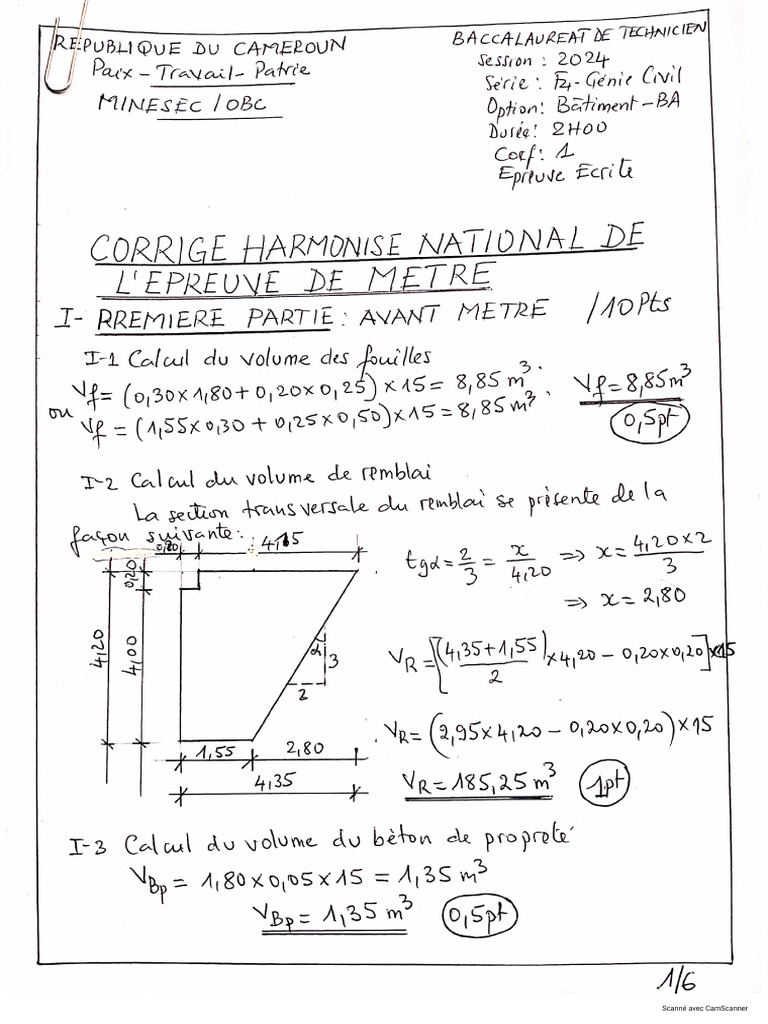 REPUBLIQUE DU CAMEROUN
Paix - Travail - Patrie
MINESEC / OBC
BACCALAUREAT DE TECHNICIEN
Session : 2024
Série : F4 - Génie Civil
Option : Bâtiment - BA
Durée : 2H00
Coef : 1
Epreuve Ecrite
CORRIGE HARMONISE NATIONAL DE
L'EPREUVE DE METRE
I- RREMIERE PARTIE : AVANT METRE /10Pts
I-1 Calcul du volume des fouilles
Vf = (0,30 x 1,80 + 0,20 x 0,25) x 15 = 8,85 m³.
ou Vf = (1,55 x 0,30 + 0,25 x 0,50) x 15 = 8,85 m³.
Vf = 8,85 m³
0,5pt
I-2 Calcul du volume de remblai
La section transversale du remblai se présente de la
façon suivante :
0,20 4,15
0,20
4,20
4,00
α
3
2
1,55 2,80
4,35
tgα = 2/3 = x/4,20 => x = 4,20 x 2/3
=> x = 2,80
VR = [(4,35 + 1,55)/2 x 4,20 - 0,20 x 0,20] x 15
VR = (2,95 x 4,20 - 0,20 x 0,20) x 15
VR = 185,25 m³ 1pt
I-3 Calcul du volume du béton de propreté
VBp = 1,80 x 0,05 x 15 = 1,35 m³
VBp = 1,35 m³ 0,5pt
1/6
Scanné avec CamScanner